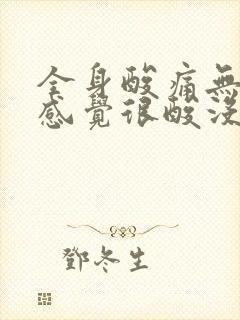 全身酸痛無
感覺很酸沒
鄧冬生